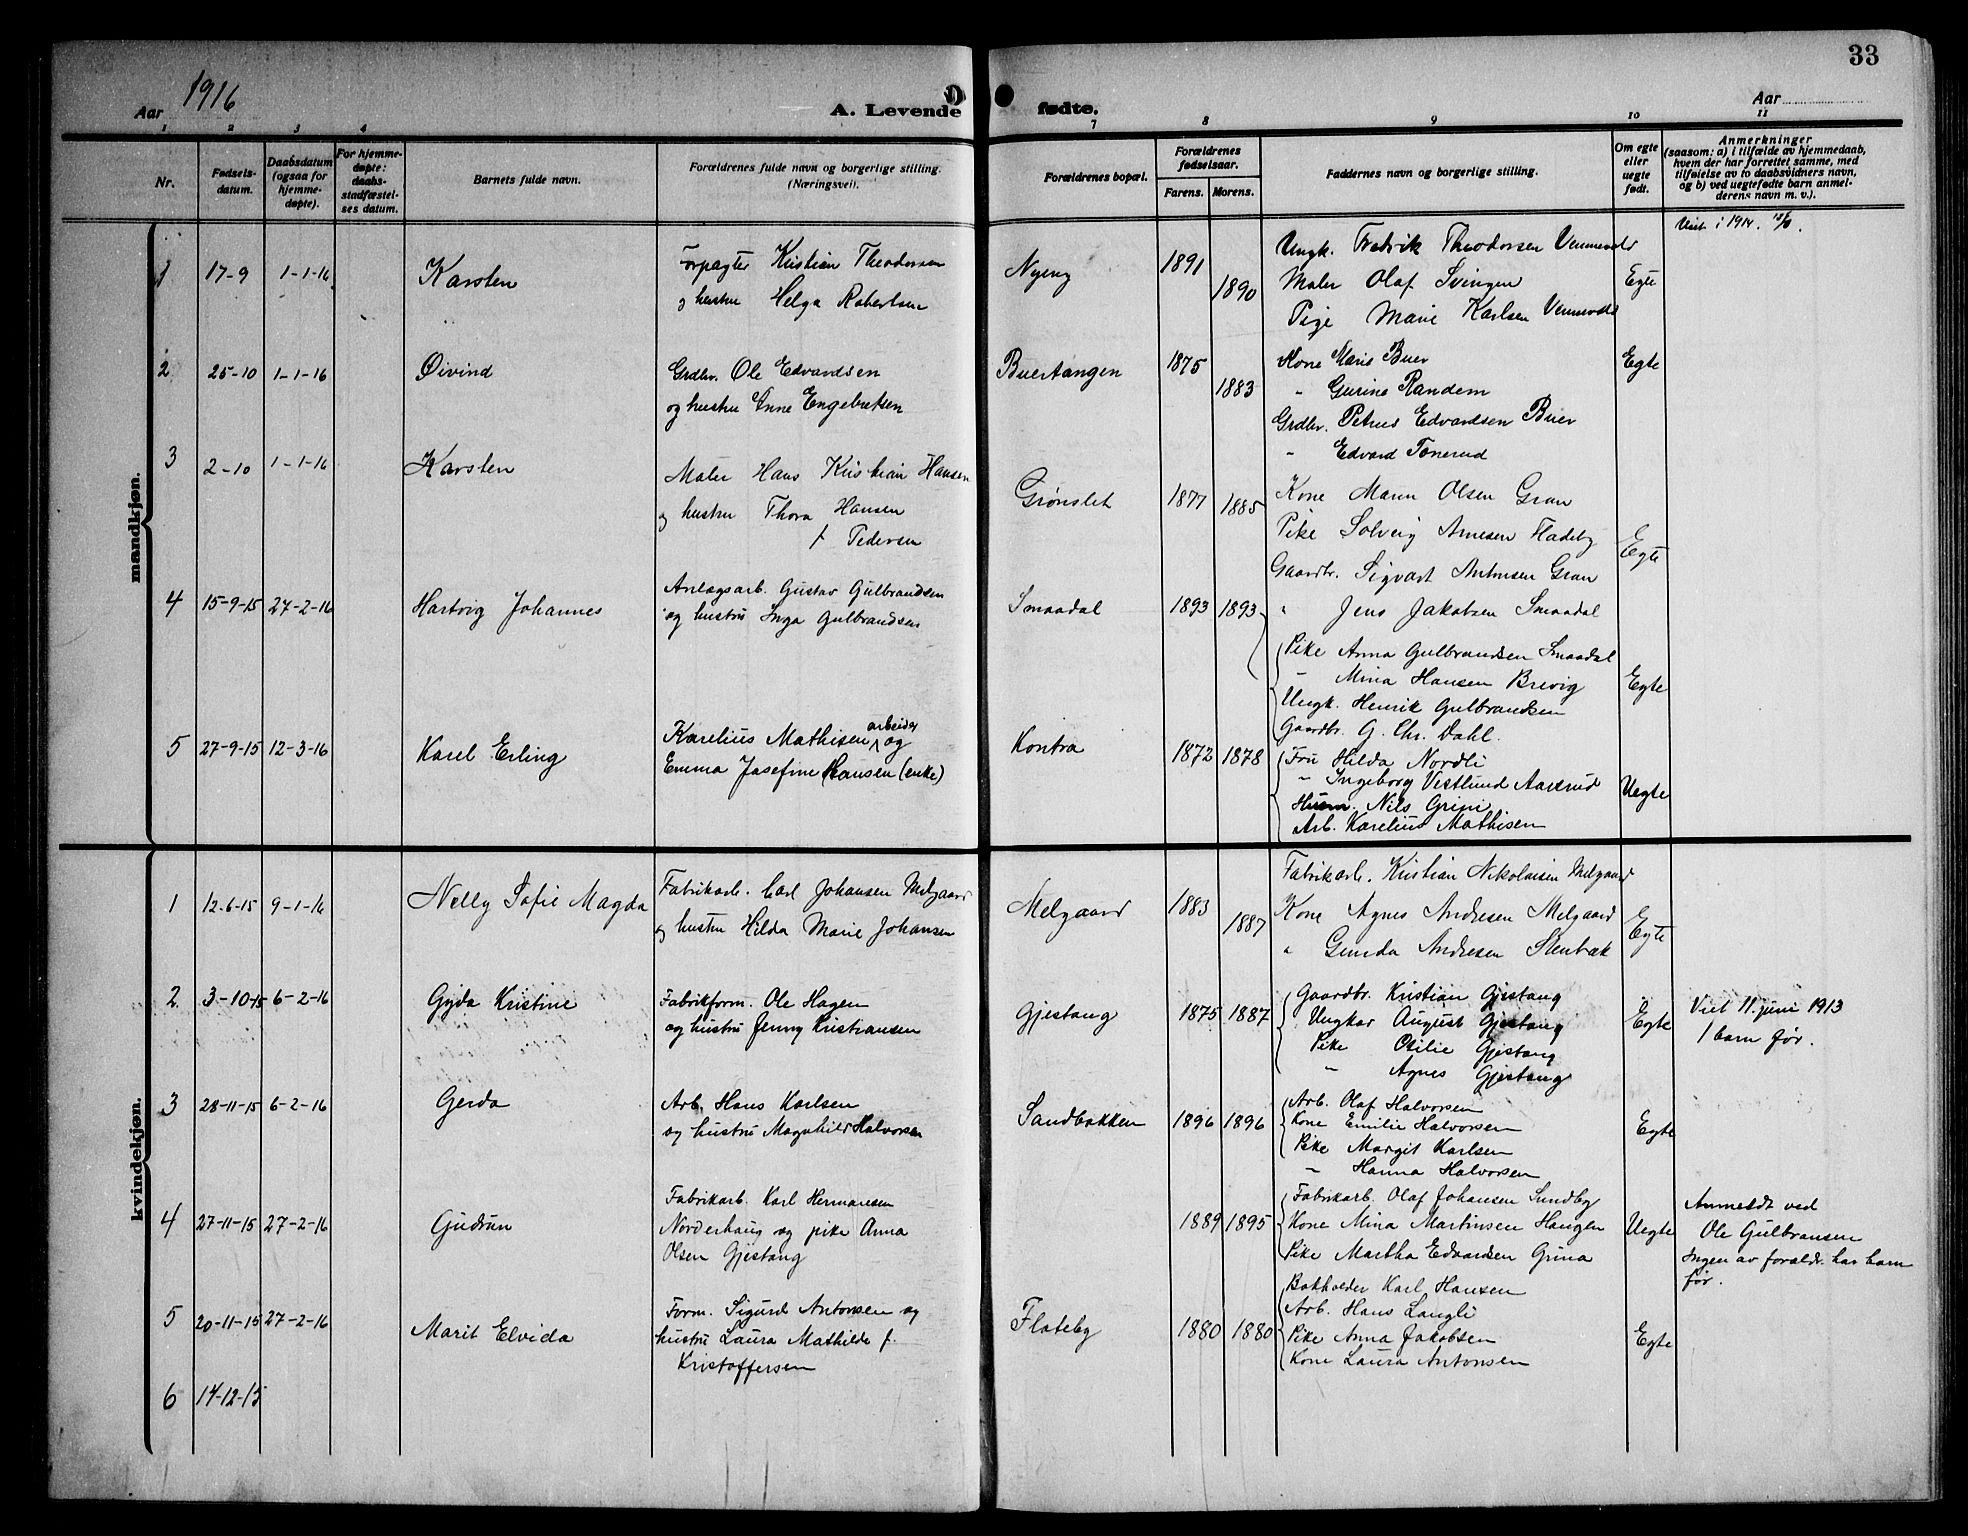 33
Aar 1916
A. Levende fødte.
Aar
1 2 3 4 7 8 9 10 11
Nr.
Fødsels-
datum.
Daabsdatum
(ogsaa for
hjemme-
døpte).
For hjemme-
døpte:
daabs-
stadfæstel-
ses datum.
Barnets fulde navn.
Forældrenes fulde navn og borgerlige stilling.
(Næringsvei).
Forældrenes bopæl.
Forældrenes
fødselsaar.
Farens. Morens.
Faddernes navn og borgerlige stilling.
Om egte
eller
uegte
født.
Anmerkninger
(saasom: a) i tilfælde av hjemmedaab,
hvem der har forrettet samme, med
tilføielse av to daabsvidners navn,
og b) ved uegtefødte barn anmel-
derens navn m. v.).
mandkjøn.
1 17-9 1-1-16 Karsten
Forpagter Kristian Theodorsen
og hustru Helga Robertsen
Nyeng 1891 1890
Ungk. Fredrik Theodorsen
Maler Olaf Svingen
Pige Marie Karlsen
Egte
Viet i 1914.
2 25-10 1-1-16 Øivind
Grdbr. Ole Edvardsen
og hustru Anne Engebretsen
Buertangen 1875 1883
Kone Maris Buer
" Gurine Randem
Grdbr. Petrus Edvardsen Buer
" Edvard Tonerud
Egte
3 2-10 1-1-16 Karsten
Maler Hans Kristian Hansen
og hustru Thora Hansen
f Pedersen
Grønslet 1877 1885
Kone Marin Olsen Gran
Pike Solveig Arnesen Fladeby
Gaardbr. Sigvart Antonsen Gran
Egte
4 15-9-15 27-2-16 Hartvig Johannes
Anlægsarb. Gustav Gulbrandsen
og hustru Inga Gulbrandsen
Smaadal 1893 1893
" Jens Jakobsen Smaadal
Pike Anna Gulbrandsen Smaadal
" Mina Hansen Brevig
Ungk. Henrik Gulbrandsen
Gaardbr. G. Chr. Dahl.
Egte
5 27-9-15 12-3-16 Karel Erling
Karelius Mathisen arbeider og
Emma Josefine Hansen (enke)
Kontra 1872 1878
Fru Hilda Nordli
" Ingeborg Vestlund Aaserud
Husm. Nils Grini.
Arb. Karelius Mathisen
Uegte
kvindekjøn.
1 12-6-15 9-1-16 Nelly Sofie Magda
Fabrikarb. Carl Johansen Melgaard
og hustru Hilda Marie Johansen
Melgaard 1883 1887
Fabrikarb. Kristian Nikolaisen Melgaard
Kone Agnes Andresen Melgaard
" Gunda Andresen Stenbæk
Egte
2 3-10-15 6-2-16 Gyda Kristine
Fabrikform. Ole Hagen
og hustru Jenny Kristiansen
Gjestang 1875 1887
Gaardbr. Kristian Gjestang
Ungkar August Gjestang
Pike Otilie Gjestang
" Agnes Gjestang
Egte
Viet 11. juni 1913
1 barn før.
3 28-11-15 6-2-16 Gerda
Arb. Hans Karlsen
og hustru Magnhild Halvorsen
Sandbakken 1896 1896
Arb. Olaf Halvorsen
Kone Emilie Halvorsen
Pike Margit Karlsen
" Hanna Halvorsen
Egte
4 27-11-15 27-2-16 Gudrun
Fabrikarb. Karl Hermansen
Norderhaug og pike Anna
Olsen Gjestang
1889 1895
Fabrikarb. Olaf Johansen Sundby
Kone Mina Martinsen Haugen
Pike Martha Edvardsen Grina
Uegte
Anmeldt ved
Ole Gulbransen
Ingen av foræld. har barn
før.
5 20-11-15 27-2-16 Marit Elvida
Form. Sigurd Antonsen og
hustru Laura Mathilde f.
Kristoffersen
Flateby 1880 1880
Bokholder Karl Hansen
Arb. Hans Langli
Pike Anna Jakobsen
Kone Laura Antonsen
Egte
6 14-12-15